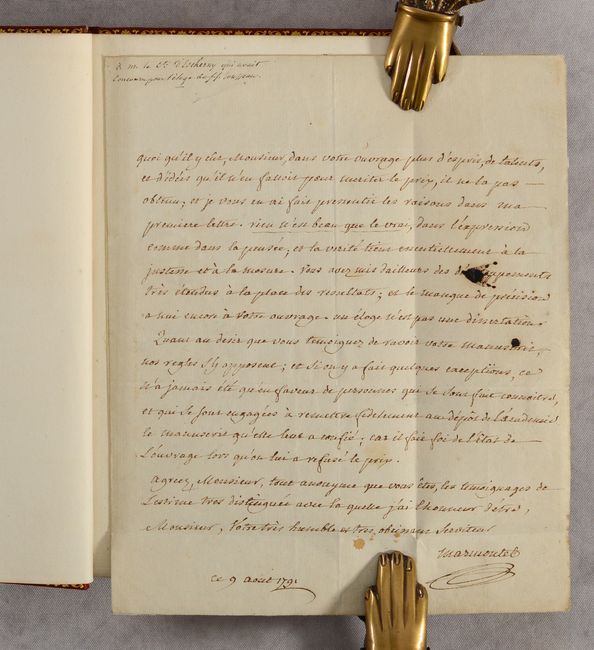 à m. le Cte d'Escherny qui avait
concouru pour l'éloge de J.J. Rousseau.
quoi qu'il y eut, Monsieur, dans votre ouvrage plus d'esprit, de talents,
et d'idées qu'il n'en falloit pour meriter le prix, il ne l'a pas
obtenu; et je vous en ai fait pressentir les raisons dans ma
premiere lettre. rien n'est beau que le vrai, dans l'expression
comme dans la pensée; et la verité tient essentiellement à la
justesse et à la mesure. vous avez mis dailleurs des developements
très étendus à la place des resultats; et le manque de précision
a nui encore à votre ouvrage. un éloge n'est pas une dissertation.
Quant au desir que vous temoignez de ravoir votre manuscrit,
nos regles s'y opposent; et si on y a fait quelques exceptions, ce
n'a jamais été qu'en faveur de personnes qui se sont fait connoitre,
et qui se sont engagées à remettre fidelement au dépôt de l'académie
le manuscrit qu'elle leur a confié; car il fait foi de l'état de
l'ouvrage lors qu'on lui a refusé le prix.
agréez, Monsieur, tout anonyme que vous êtes, les temoignages de
l'estime tres distinguée avec la quelle j'ai l'honneur d'être,
Monsieur, Votre très humble et tres obeissant serviteur
Marmontel
ce 9 août 1791